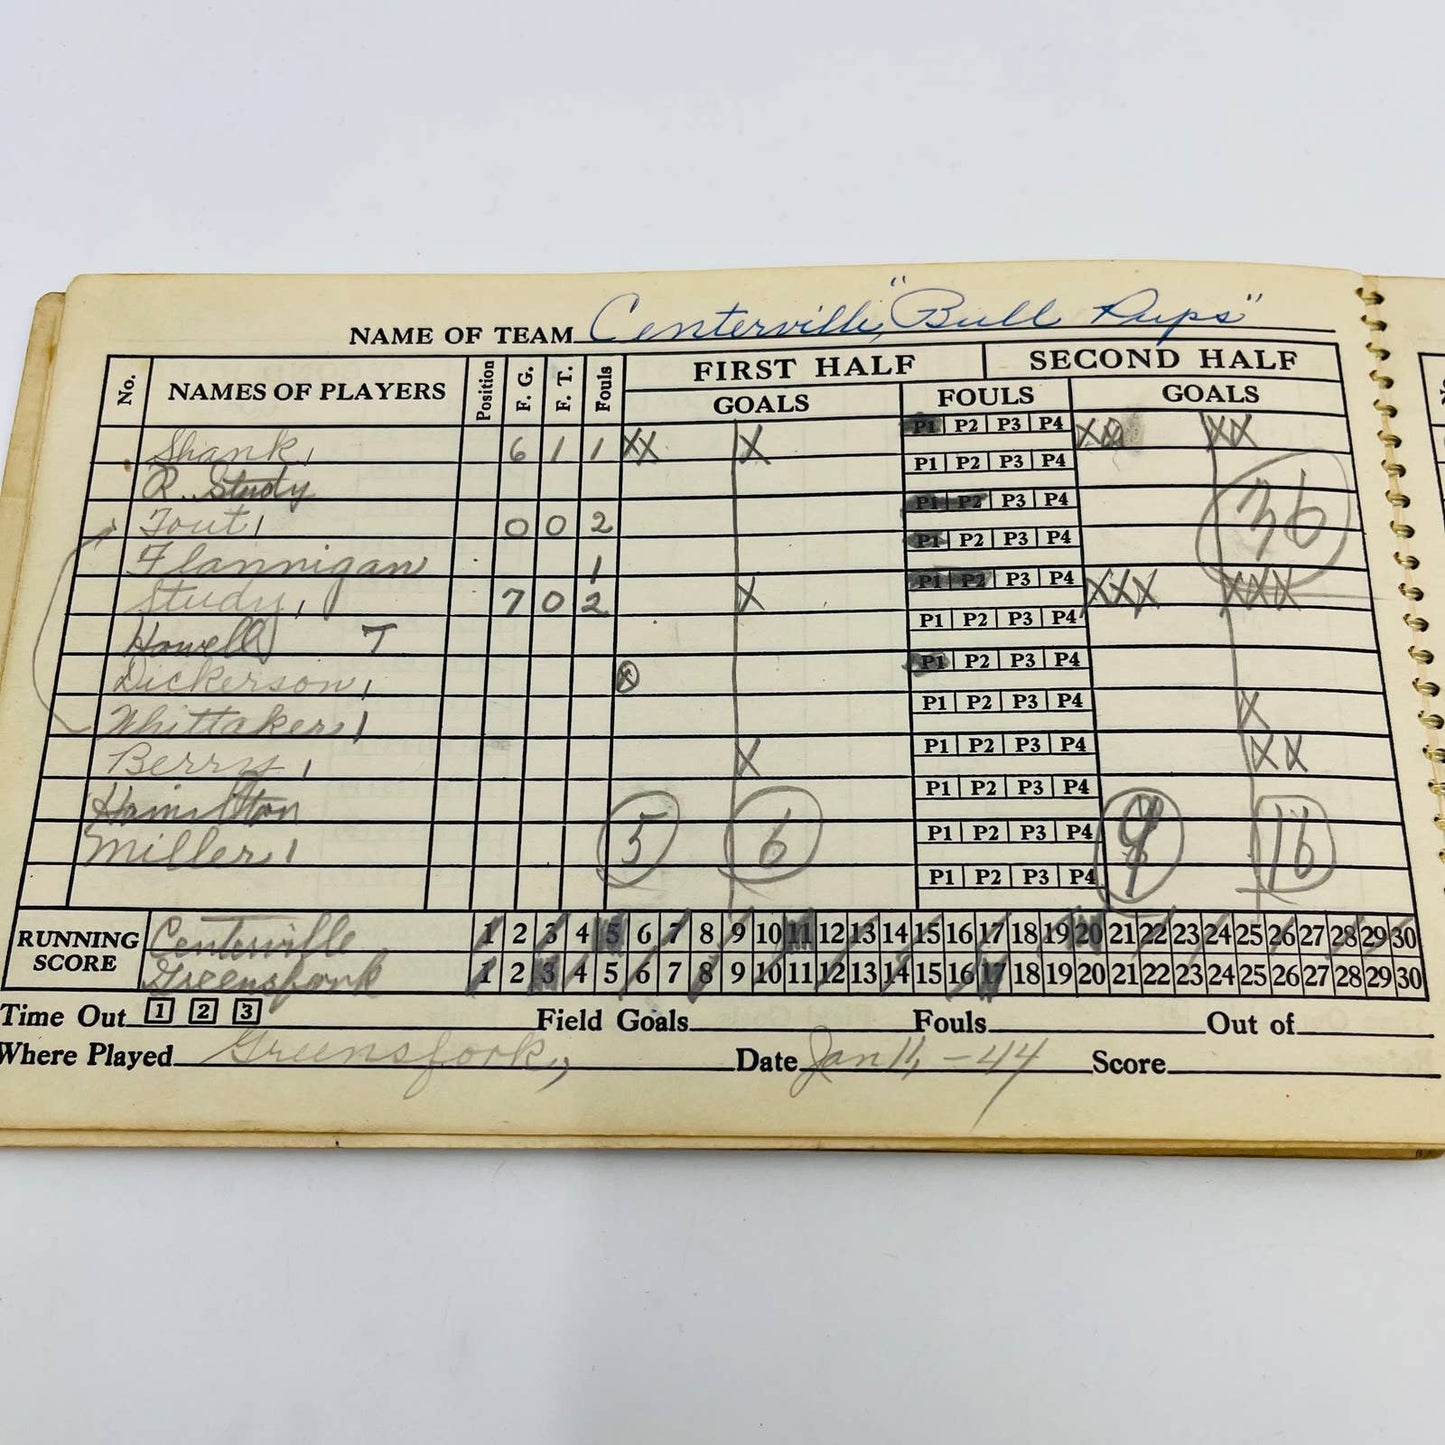 NAME OF TEAM Centerville, "Bull Pups"
No. NAMES OF PLAYERS Position F. G. F. T. Fouls FIRST HALF SECOND HALF
GOALS FOULS GOALS
Shank, 6 1 1 XX X P1 P2 P3 P4 XX XX
R. Study P1 P2 P3 P4
Tout, 0 0 2 P1 P2 P3 P4 36
Flannigan 1 P1 P2 P3 P4
Study, 7 0 2 X P1 P2 P3 P4 XXX XXX
Howell T P1 P2 P3 P4
Dickerson, X P1 P2 P3 P4
Whittaker, P1 P2 P3 P4 X
Berry, X P1 P2 P3 P4 XX
Hamilton P1 P2 P3 P4
Miller, 5 6 P1 P2 P3 P4 9 16
P1 P2 P3 P4
RUNNING SCORE Centerville 1 2 3 4 5 6 7 8 9 10 11 12 13 14 15 16 17 18 19 20 21 22 23 24 25 26 27 28 29 30
Greensfork 1 2 3 4 5 6 7 8 9 10 11 12 13 14 15 16 17 18 19 20 21 22 23 24 25 26 27 28 29 30
Time Out 1 2 3 Field Goals Fouls Out of
Where Played Greensfork, Date Jan 11, -44 Score